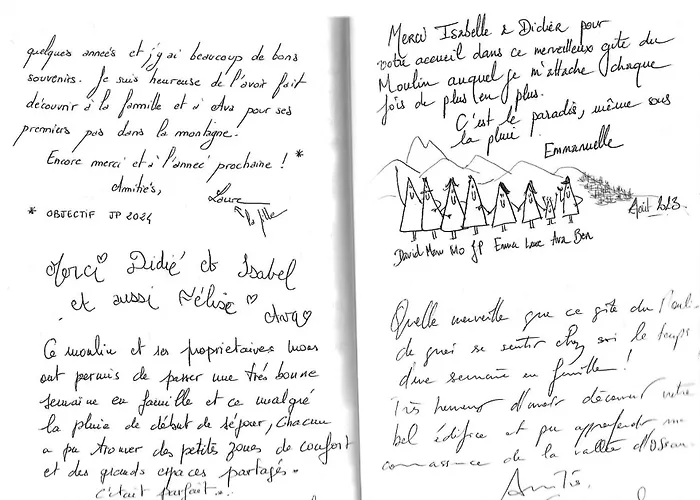 quelques années et j'y ai beaucoup de bons
souvenirs. Je suis heureuse de l'avoir fait
découvrir à la famille et à Ava pour ses
premiers pas dans la montagne.
Encore merci et à l'année prochaine ! *
Amitiés,
Laure
la fille
* OBJECTIF JP 2024
Merci Didié et Isabel
et aussi Félise
Ava
Ce moulin et ses propriétaires nous
ont permis de passer une très bonne
semaine en famille et ce malgré
la pluie de début de séjour, chacun
a pu trouver des petits zones de confort
et des grands espaces partagés.
C'était parfait...
Merci Isabelle & Didier pour
votre accueil dans ce merveilleux gîte du
Moulin auquel je m'attache chaque
fois de plus en plus.
C'est le paradis, même sous
la pluie.
Emmanuelle
Août 2023
David Manu Mo JP Emma Laure Ava Ben
Quelle merveille que ce gîte du
de quoi se sentir chez soi le temps
d'une semaine en famille !
Très heureux d'avoir découvert votre
bel édifice et pu approfondir ma
connaissance de la vallée d'Ossau.
Amitiés.